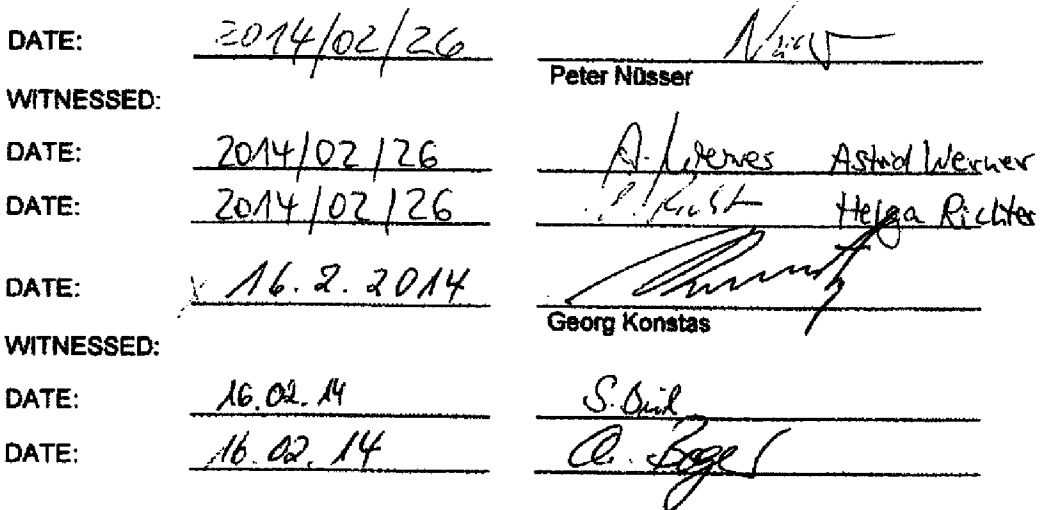 DATE: 2014/02/26
Peter Nüsser
WITNESSED:
DATE: 2014/02/26 A. Werner Astrid Werner
DATE: 2014/02/26 Helga Richter
DATE: 16.2.2014
Georg Konstas
WITNESSED:
DATE: 16.02.14 S.
DATE: 16.02.14